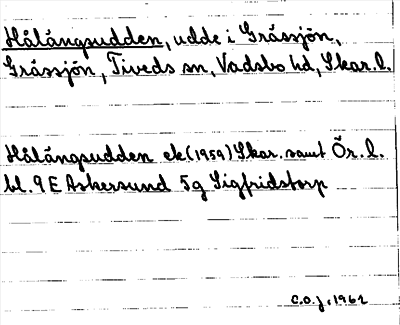 Hålängsudden, udde i Grässjön,
Grässjön, Tiveds sn, Vadsbo hd, Skar. l.
Hålängsudden ek (1959) Skar. samt Ör. l.
bl. 9 E Askersund 5g Sigfridstorp
C.O.J. 1962